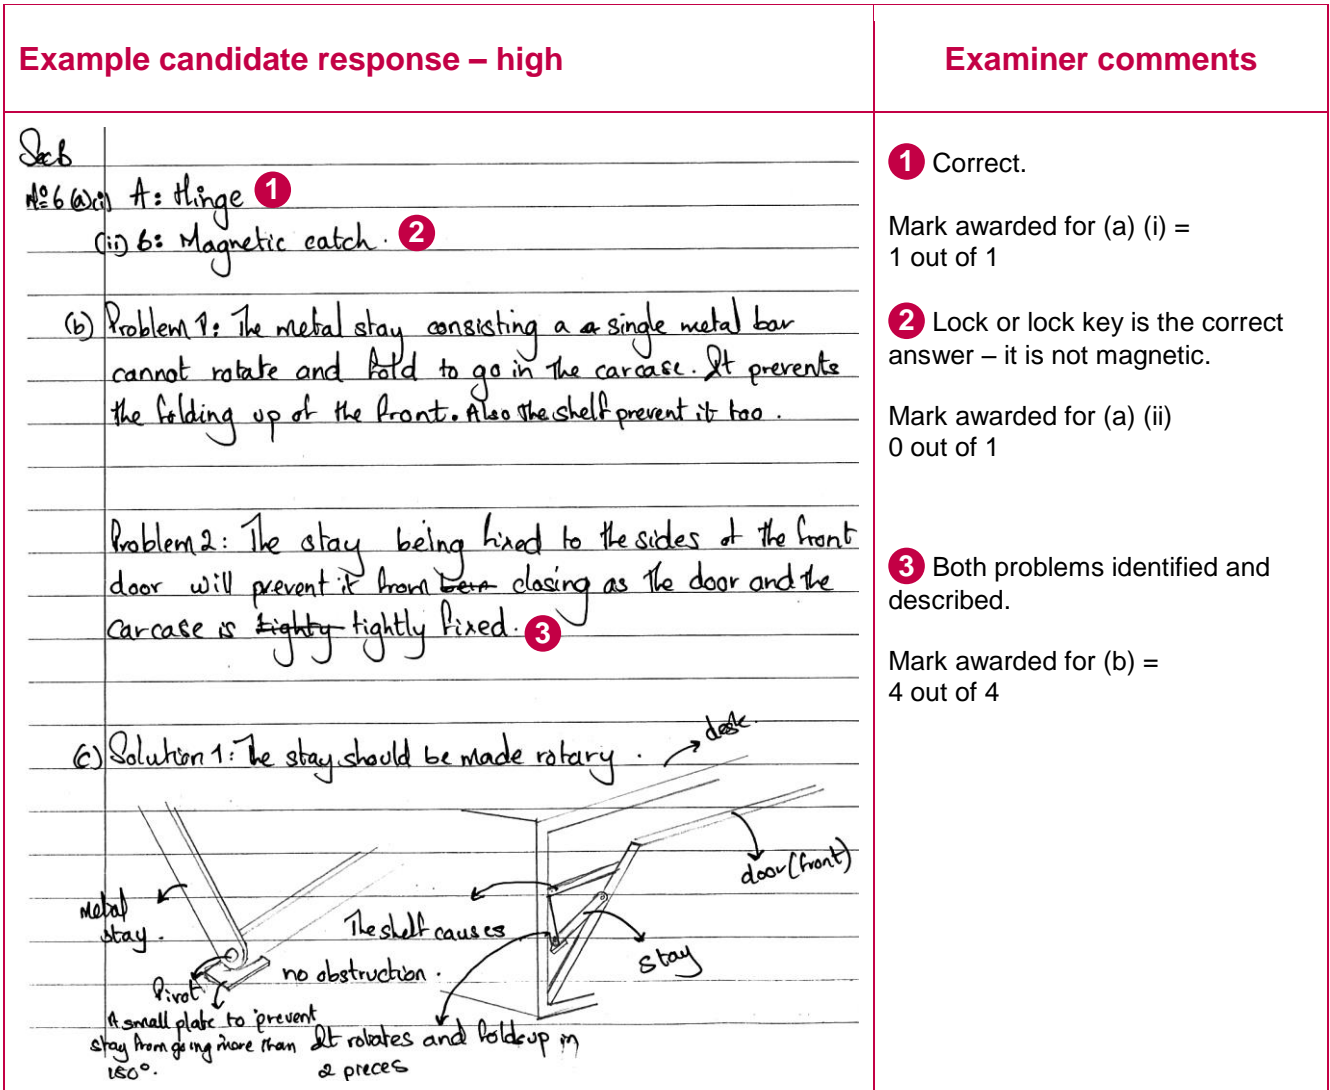 Example candidate response – high
Examiner comments
Sec B
No 6 (a)(i) A: Hinge 1
(ii) B: Magnetic catch. 2
(b) Problem 1: The metal stay consisting a a single metal bar
cannot rotate and fold to go in the carcase. It prevents
the folding up of the front. Also the shelf prevent it too.
Problem 2: The stay being fixed to the sides of the front
door will prevent it from closing as the door and the
carcase is tighty tightly fixed. 3
(c) Solution 1: The stay should be made rotary.
desk.
metal
stay.
Pivot
A small plate to prevent
stay from going more than
150°.
The shelf causes
no obstruction.
door (front)
stay
It rotates and folds up in
2 pieces
1 Correct.
Mark awarded for (a) (i) =
1 out of 1
2 Lock or lock key is the correct
answer – it is not magnetic.
Mark awarded for (a) (ii)
0 out of 1
3 Both problems identified and
described.
Mark awarded for (b) =
4 out of 4